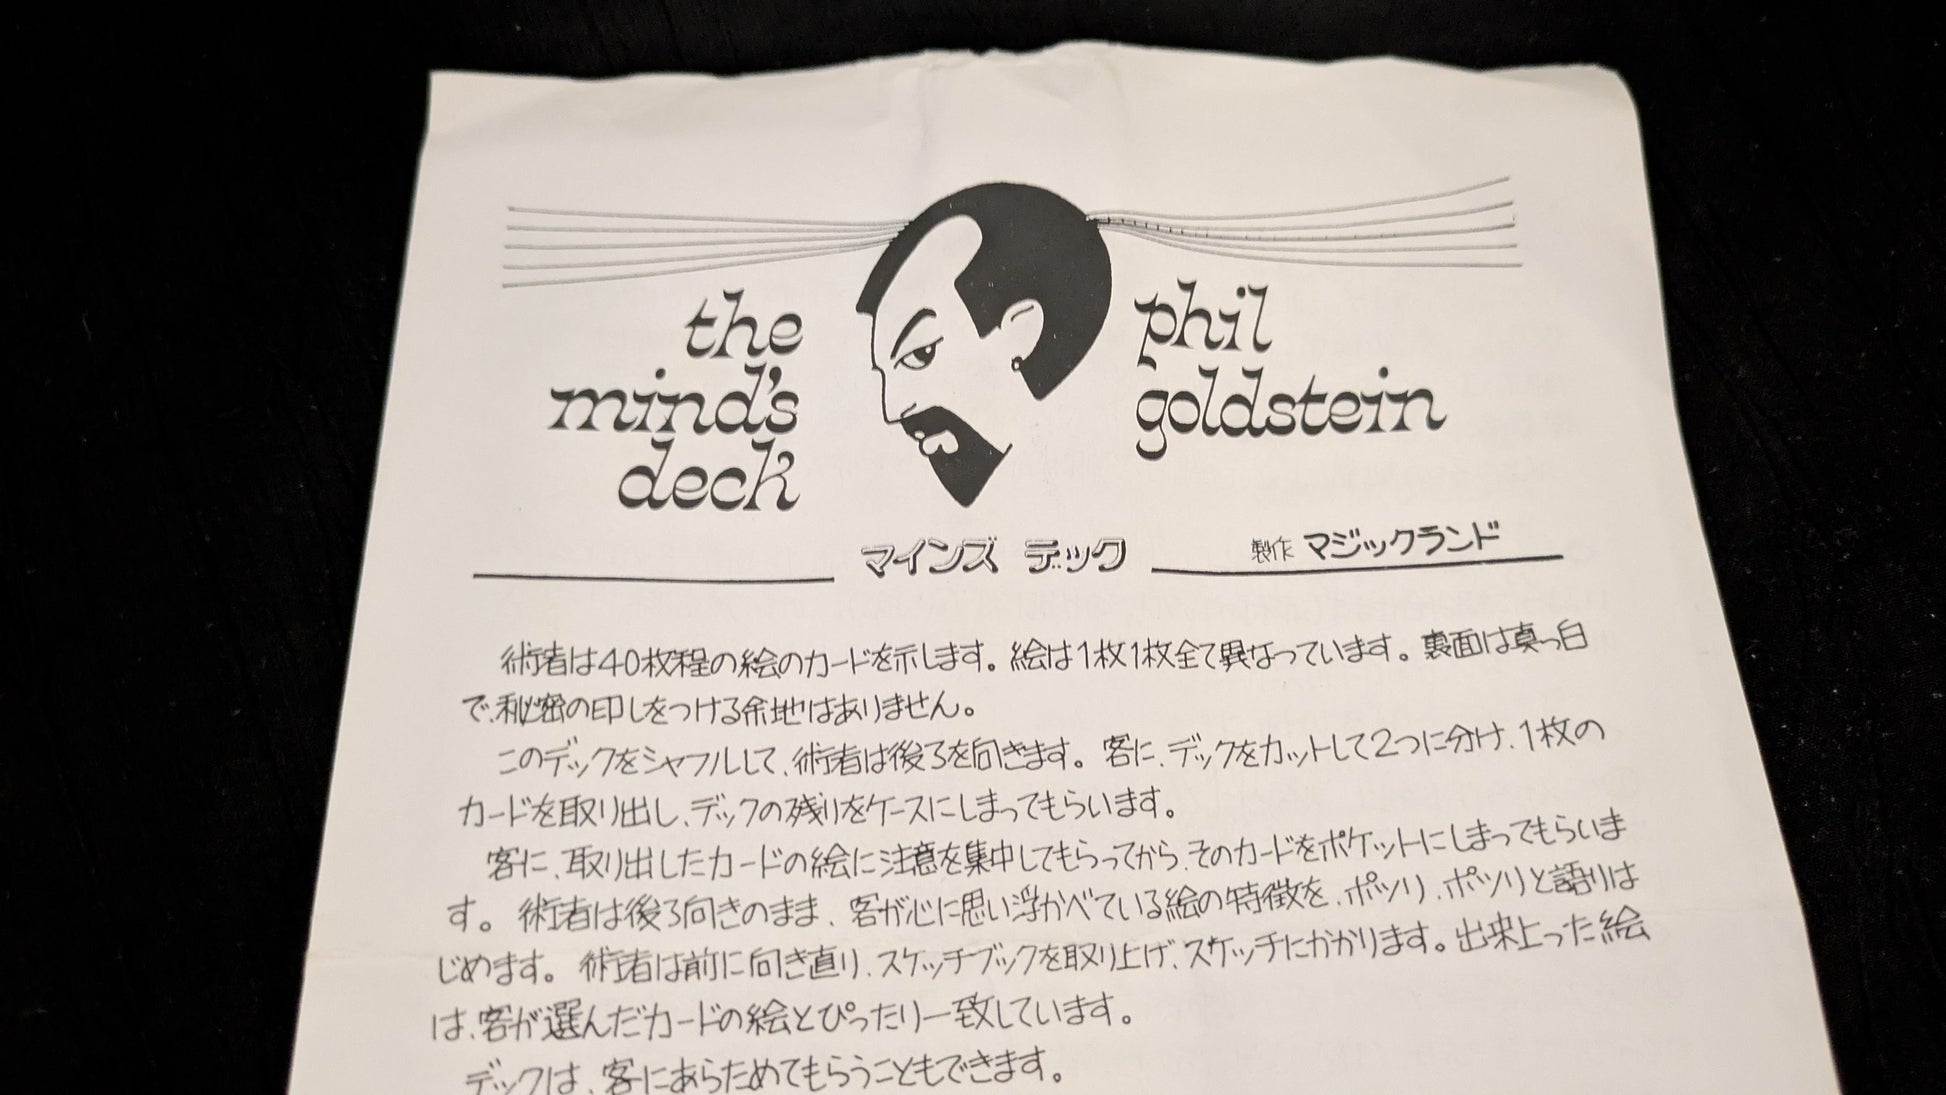 the
mind's
deck
phil
goldstein
マインズ デック
製作 マジックランド
術者は40枚程の絵のカードを示します。絵は1枚1枚全て異なっています。裏面は真っ白
で、秘密の印しをつける余地はありません。
このデックをシャフルして、術者は後ろを向きます。客に、デックをカットして2つに分け、1枚の
カードを取り出し、デックの残りをケースにしまってもらいます。
客に、取り出したカードの絵に注意を集中してもらってから、そのカードをポケットにしまってもらいま
す。術者は後ろ向きのまま、客が心に思い浮かべている絵の特徴を、ポツリ、ポツリと語りは
じめます。術者は前に向き直り、スケッチブックを取り上げ、スケッチにかかります。出来上った絵
は、客が選んだカードの絵とぴったり一致しています。
デックは、客にあらためてもらうこともできます。